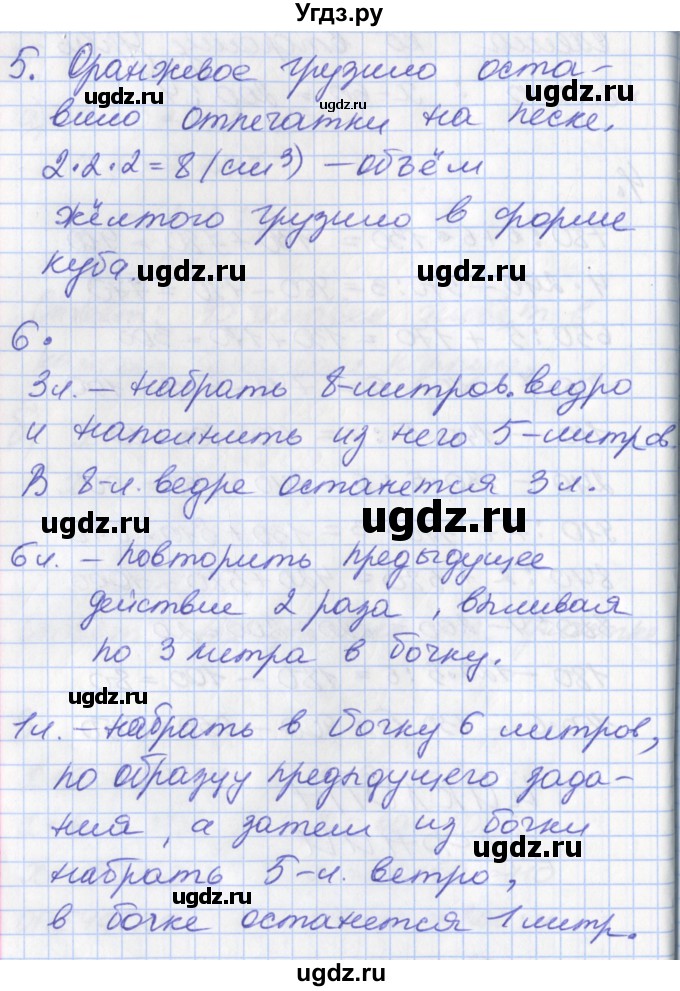 Угдз.ру
5. Оранжевое грузило оста-
ugdz.ru ugdz.ru
вило отпечатки на песке.
2·2·2=8 (см³) – объём
жёлтого грузило в форме
куба.
ugdz.ru ugdz.ru
6.
3л. – набрать 8-литров. ведро
и наполнить из него 5-литров.
В 8-л. ведре останется 3л.
ugdz.ru ugdz.ru
6л. – повторить предыдущее
действие 2 раза, выливая
по 3 литра в бочку.
ugdz.ru
1л. – набрать в бочку 6 литров,
по образцу предыдущего зада-
ния, а затем из бочки
ugdz.ru
набрать 5-л. ветро,
ugdz.ru
в бочке останется 1 литр.
ugdz.ru